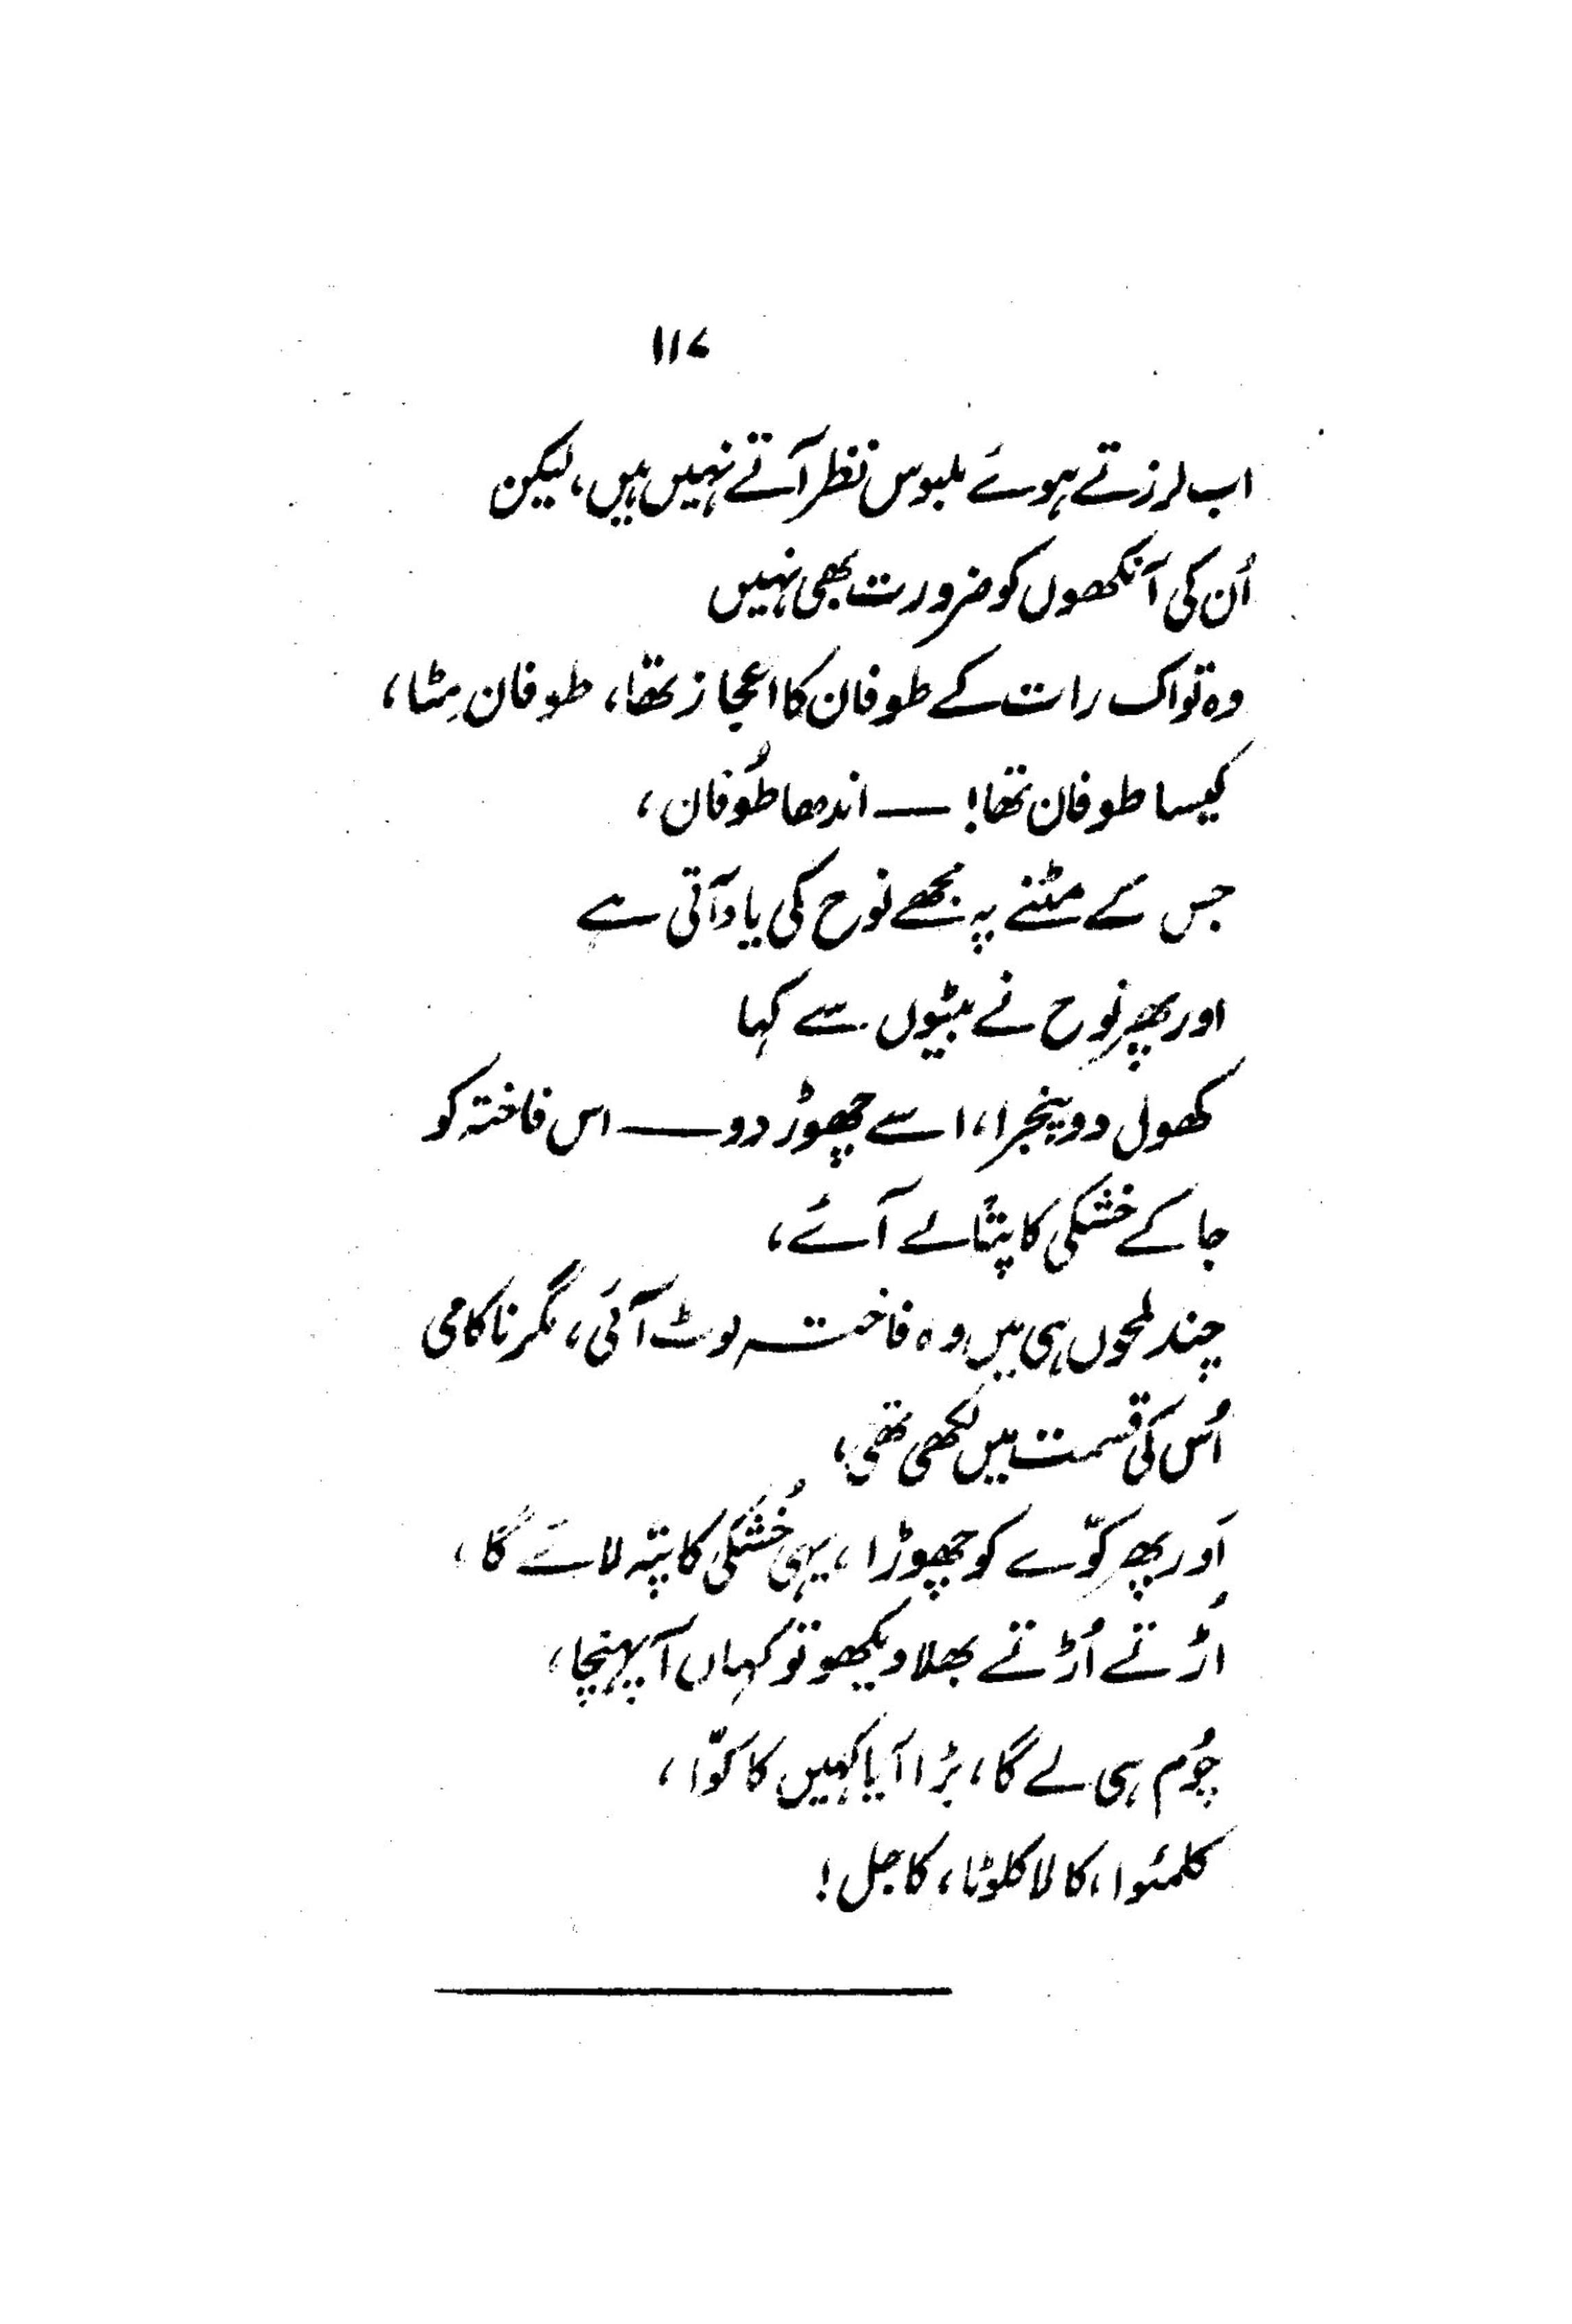 ۱۱۷
اب لرزتے ہوئے ملبوس نظر آتے نہیں ہیں، لیکن
اُن کی آنکھوں کو ضرورت بھی نہیں
وہ تو اک رات کے طوفان کا اعجاز تھا، طوفان مِٹا،
کیسا طوفان تھا! — اندھا طُوفان،
جس کے مٹنے پہ مجھے نوح کی یاد آتی ہے
اور پھر نوح نے بیٹوں سے کہا
کھول دو پنجرا، اسے چھوڑ دو — اس فاختہ کو
جا کے خشکی کا پتا لے آئے،
چند لمحوں ہی میں وہ فاختہ لوٹ آئی، مگر ناکامی
اُس کی قسمت میں لکھی تھی،
اَور پھر کوّے کو چھوڑا، یہی خُشکی کا پتہ لائے گا،
اُڑتے اُڑتے بھلا دیکھو تو کہاں آ پہنچا،
چُوم ہی لے گا، بڑا آیا کہیں کا کوّا،
کلمئوا، کالا کلوٹا، کاجل!